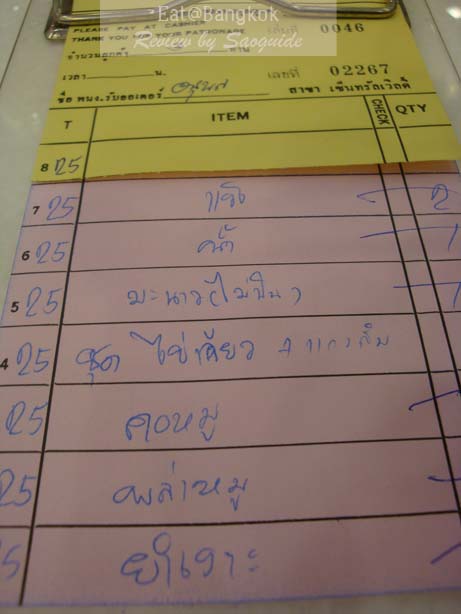 Eat@Bangkok
Review by Saoguide
PLEASE PAY AT CASHIER
THANK YOU FOR YOUR PATRONAGE เล่มที่ 0046
จำนวนลูกค้า ท่าน
เวลา น. เลขที่ 02267
ชื่อ พนง.รับออเดอร์ สาขา เซ็นทรัลเวิลด์
T ITEM CHECK QTY
8 25
7 25 แข็ง 2
6 25 น้ำ 1
5 25 มะนาว(ไม่ปั่น) 1
4 25 ชุด ไข่เจียว + แกงส้ม
25 คอหมู
25 พล่าหมู
25 ยำเงาะ